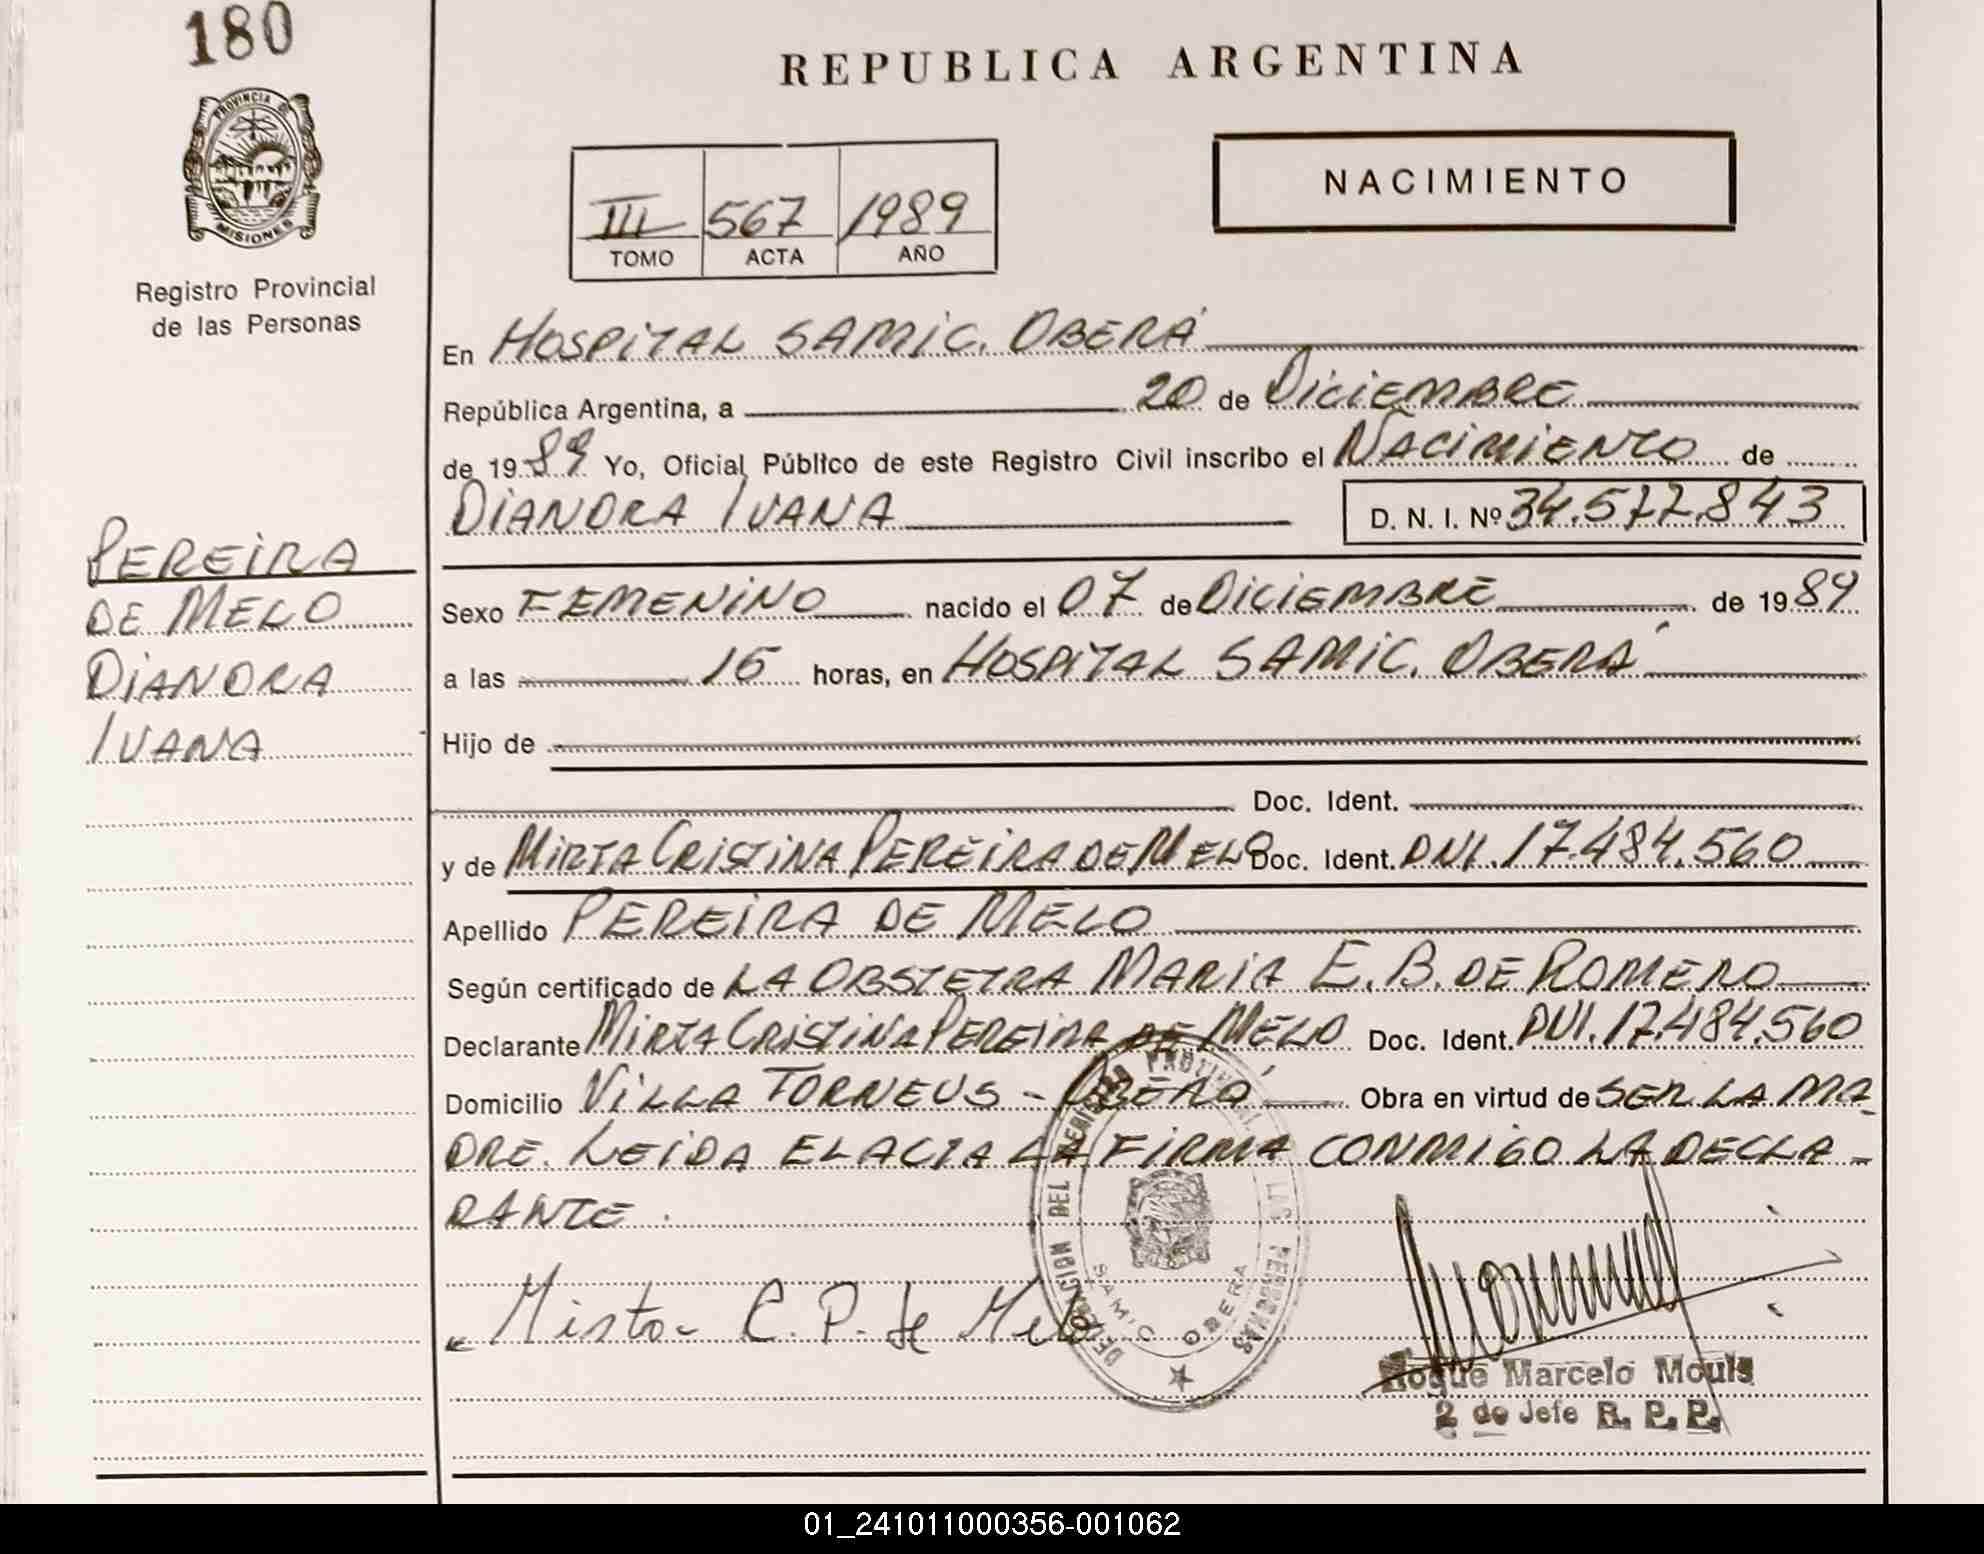 180
REPUBLICA ARGENTINA
PROVINCIA DE
MISIONES
Registro Provincial
de las Personas
III 567 1989
TOMO ACTA AÑO
NACIMIENTO
En HOSPITAL SAMIC. OBERÁ
República Argentina, a 20 de DICIEMBRE
de 1989 Yo, Oficial Público de este Registro Civil inscribo el NACIMIENTO de
DIANORA IVANA D. N. I. Nº 34.577.843
PEREIRA
DE MELO
DIANORA
IVANA
Sexo FEMENINO nacido el 07 de DICIEMBRE de 1989
a las 15 horas, en HOSPITAL SAMIC. OBERÁ
Hijo de
Doc. Ident.
y de MIRTA CRISTINA PEREIRA DE MELO Doc. Ident. DNI. 17.484.560
Apellido PEREIRA DE MELO
Según certificado de LA OBSTETRA MARIA E. B. DE ROMERO
Declarante MIRTA CRISTINA PEREIRA DE MELO Doc. Ident. DNI. 17.484.560
Domicilio VILLA TORNEUS - OBERÁ Obra en virtud de SER LA MA-
DRE. LEIDA EL ACTA LA FIRMA CONMIGO LA DECLA-
RANTE.
Mirta C. P. de Melo
DELEGACION DEL REGISTRO PROVINCIAL DE LAS PERSONAS
SAMIC OBERA
Roque Marcelo Mouls
2 do Jefe R. P. P.
01_241011000356-001062